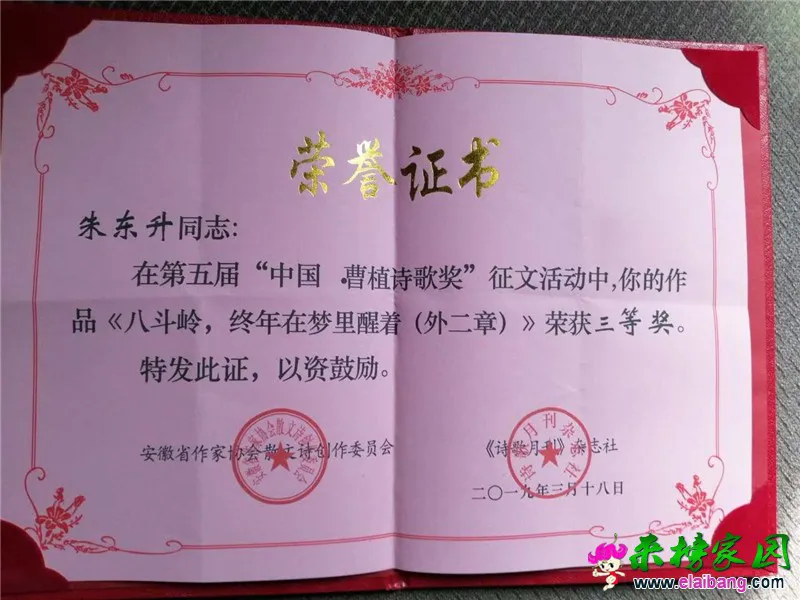 荣誉证书
朱东升同志:
在第五届“中国·曹植诗歌奖”征文活动中,你的作
品《八斗岭，终年在梦里醒着（外二章）》荣获三等奖。
特发此证，以资鼓励。
安徽省作家协会散文诗创作委员会
《诗歌月刊》杂志社
诗歌月刊杂志社
二〇一九年三月十八日
来榜家园
www.elaibang.com